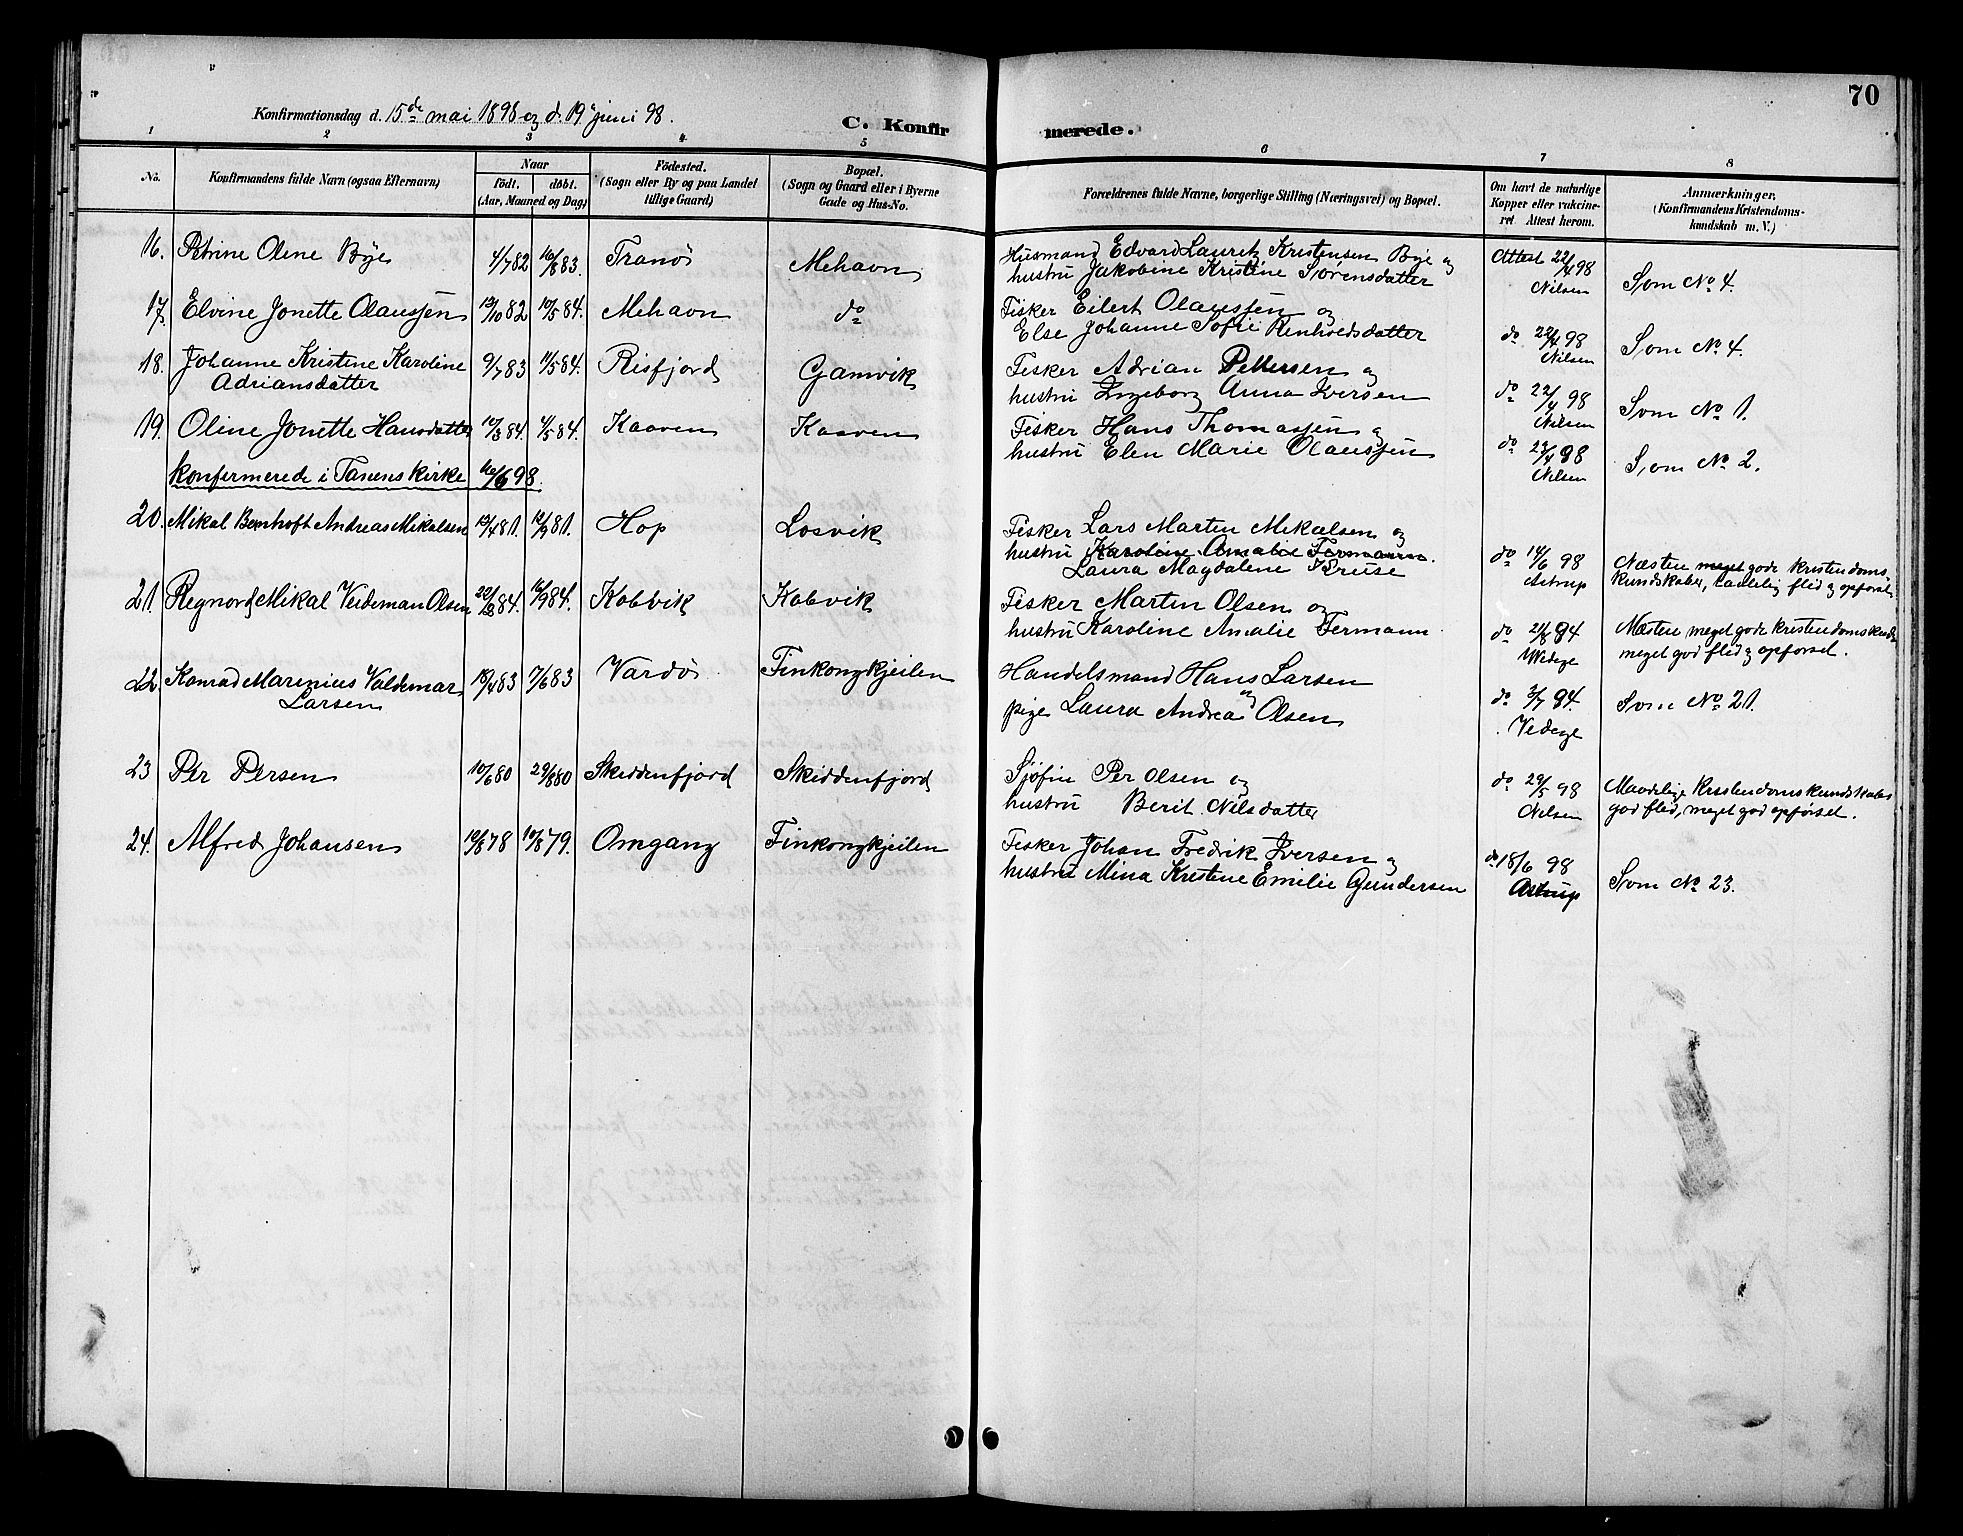 70
Konfirmationsdag d. 15de mai 1898 og d. 19de juni 98.
C. Konfirmerede.
1 2 3 4 5 6 7 8
No. Konfirmandens fulde Navn (ogsaa Efternavn)
Naar
födt. döbt.
(Aar, Maaned og Dag)
Födested.
(Sogn eller By og paa Landet
tillige Gaard)
Bopæl.
(Sogn og Gaard eller i Byerne
Gade og Hus-No.
Forældrenes fulde Navne, borgerlige Stilling (Næringsvei) og Bopæl.
Om havt de naturlige
Kopper eller vakcine-
ret Attest herom.
Anmærkninger.
(Konfirmandens Kristendoms-
kundskab m. V.)
16. Petrine Oline Bye 4/7 82 16/8 83. Tranö Mehavn Husmand Edvard Lauritz Kristensen Bye og
hustru Jakobine Kristine Sörensdatter
Attest 22/4 98
Nilsen
Som No 4.
17. Elvine Jonette Olaussen 12/10 82 10/5 84. Mehavn do Fisker Eilert Olaussen og
Else Johanne Sofie Renholdsdatter
do 22/4 98
Nilsen
Som No 4.
18. Johanne Kristine Karoline
Adriansdatter
9/7 83 11/5 84. Risfjord Gamvik Fisker Adrian Pettersen og
hustru Ingeborg Anna Iversen
do 22/4 98
Nilsen
Som No 1.
19. Oline Jonette Hansdatter 12/3 84 4/5 84. Kaaven Kaaven Fisker Hans Thomassen og
hustru Elen Marie Olaussen
do 22/4 98
Nilsen
Som No 2.
konfermerede i Tanens kirke 19/6 98.
20. Mikal Bernhoft Andreas Mikalsen 12/4 81. 12/9 81. Hop Losvik Fisker Lars Martin Mikalsen og
hustru Karoline Amalie Fermann.
Laura Magdalene Kruse
do 14/6 98
Astrup
Næsten meget gode kristendoms
kundskaber, taalelig flid og opförsel
21. Regnord Mikal Veideman Olsen 16/9 84. Kobvik Kobvik Fisker Martin Olsen og
hustru Karoline Amalie Fermann.
do 21/8 94
Wedege
Næsten meget gode kristendomskund
meget god flid og opförsel.
22. Konrad Marenius Valdemar
Larsen
18/4 83 7/6 83 Vardö Finkongkjeilen Handelsmand Hans Larsen
og
pige Laura Andrea Olsen
do 3/7 94.
Vedege
Som No 21.
23 Per Persen 10/6 80 29/8 80 Skiddenfjord Skiddenfjord Sjöfin Per Olsen og
hustru Berit Nilsdatter
do 29/5 98
Nilsen
Maadelige Kristendomskundskaber
god flid, meget god opförsel.
24. Alfred Johansen 19/8 78 10/8 79. Omgang Finkongkjeilen Fisker Johan Fredrik Iversen og
hustru Mina Kristine Emilie Gundersen
do 18/6 98
Astrup
Som No 23.